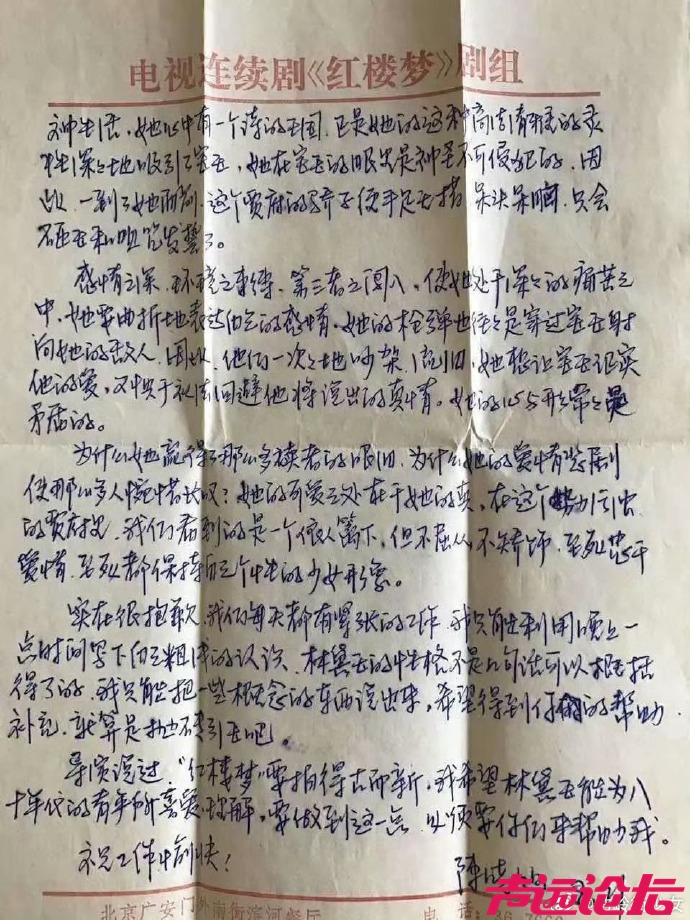 电视连续剧《红楼梦》剧组
神生活，她心中有一个诗的王国，正是她的这种高洁清雅的灵
性深深地吸引了宝玉，她在宝玉的眼里是神圣不可侵犯的，因
此，一到了她面前，这个贾府的骄子便手足无措、呆头呆脑，只会
感情之深，环境之束缚，第三者之闯入，使她处于深深的痛苦之
中，她要曲折地表达自己的感情，她的枪弹也往往是穿过宝玉射
向她的敌人，因此，他们一次次地吵架、流泪，她想让宝玉证实
他的爱，又惧于礼法回避他将说出的真情。她的心与形常常是
矛盾的。
为什么她赢得了那么多读者的眼泪，为什么她的爱情悲剧
使那么多人惋惜长叹？她的可爱之处在于她的真，在这个
的贾府里，我们看到的是一个寄人篱下，但不屈从、不矫饰，至死忠于
爱情，至死都保持自己个性的少女形象。
实在很抱歉，我们每天都有紧张的工作，我只能利用晚上一
点时间写下自己粗浅的认识，林黛玉的性格不是几句话可以概括
得了的，我只能把一些概念的东西说出来，希望得到你们的帮助
补充，就算是抛砖引玉吧。
导演说过，“红楼梦”要拍得古而新，我希望林黛玉能为八
十年代的青年所喜爱、理解，要做到这一点，必须要你们来帮助我。
祝工作愉快！
陈晓旭
北京广安门外南街滨河餐厅
声远论坛